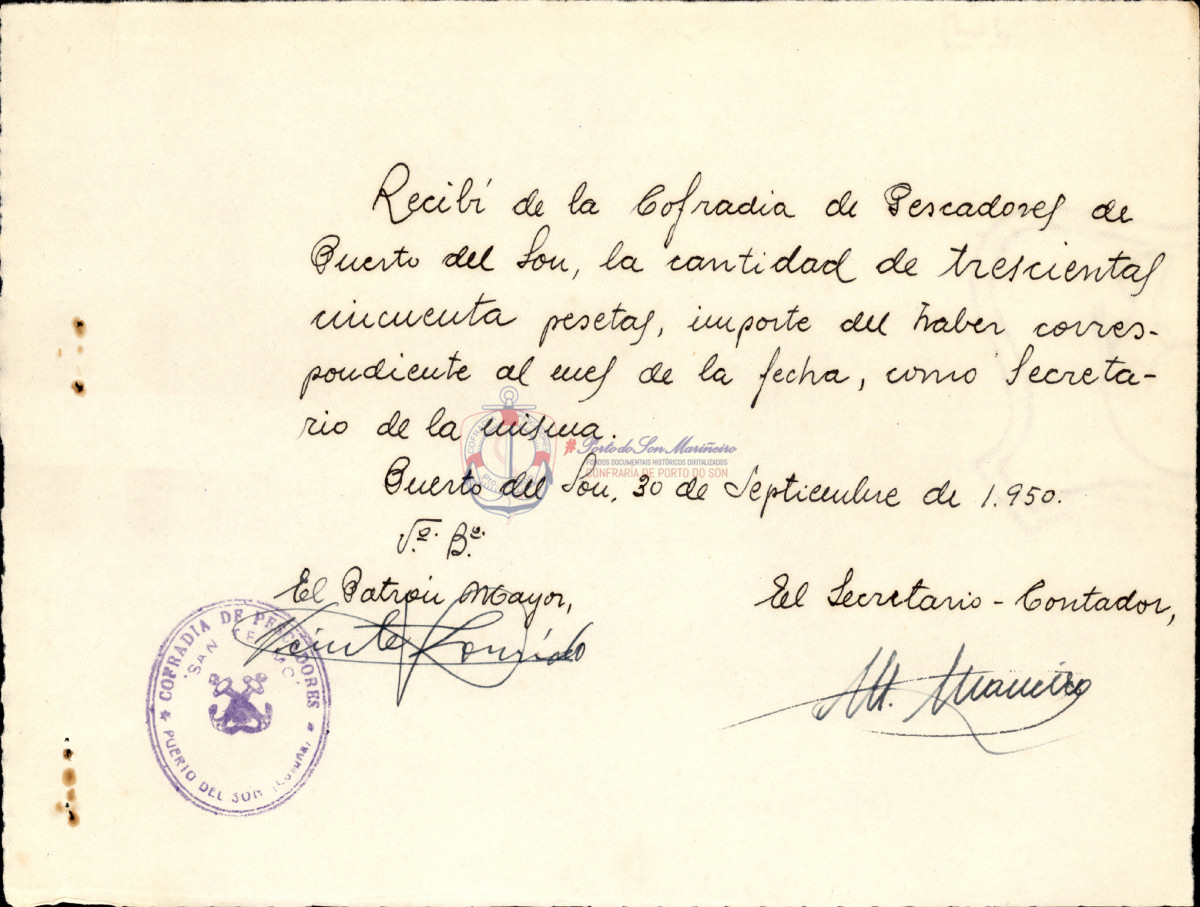 Recibí de la Cofradia de Pescadores de
Puerto del Son, la cantidad de trescientas
cincuenta pesetas, importe del haber corres-
pondiente al mes de la fecha, como Secreta-
rio de la misma.
#Porto do Son Mariñeiro
FONDOS DOCUMENTAIS HISTÓRICOS DIGITALIZADOS
CONFRARÍA DE PORTO DO SON
Puerto del Son, 30 de Septiembre de 1.950.
Vº. Bº.
El Patrón Mayor,
El Secretario-Contador,
Vicente
M. Maneiro
COFRADIA DE PESCADORES
"SAN TELMO"
PUERTO DEL SON (Coruña)